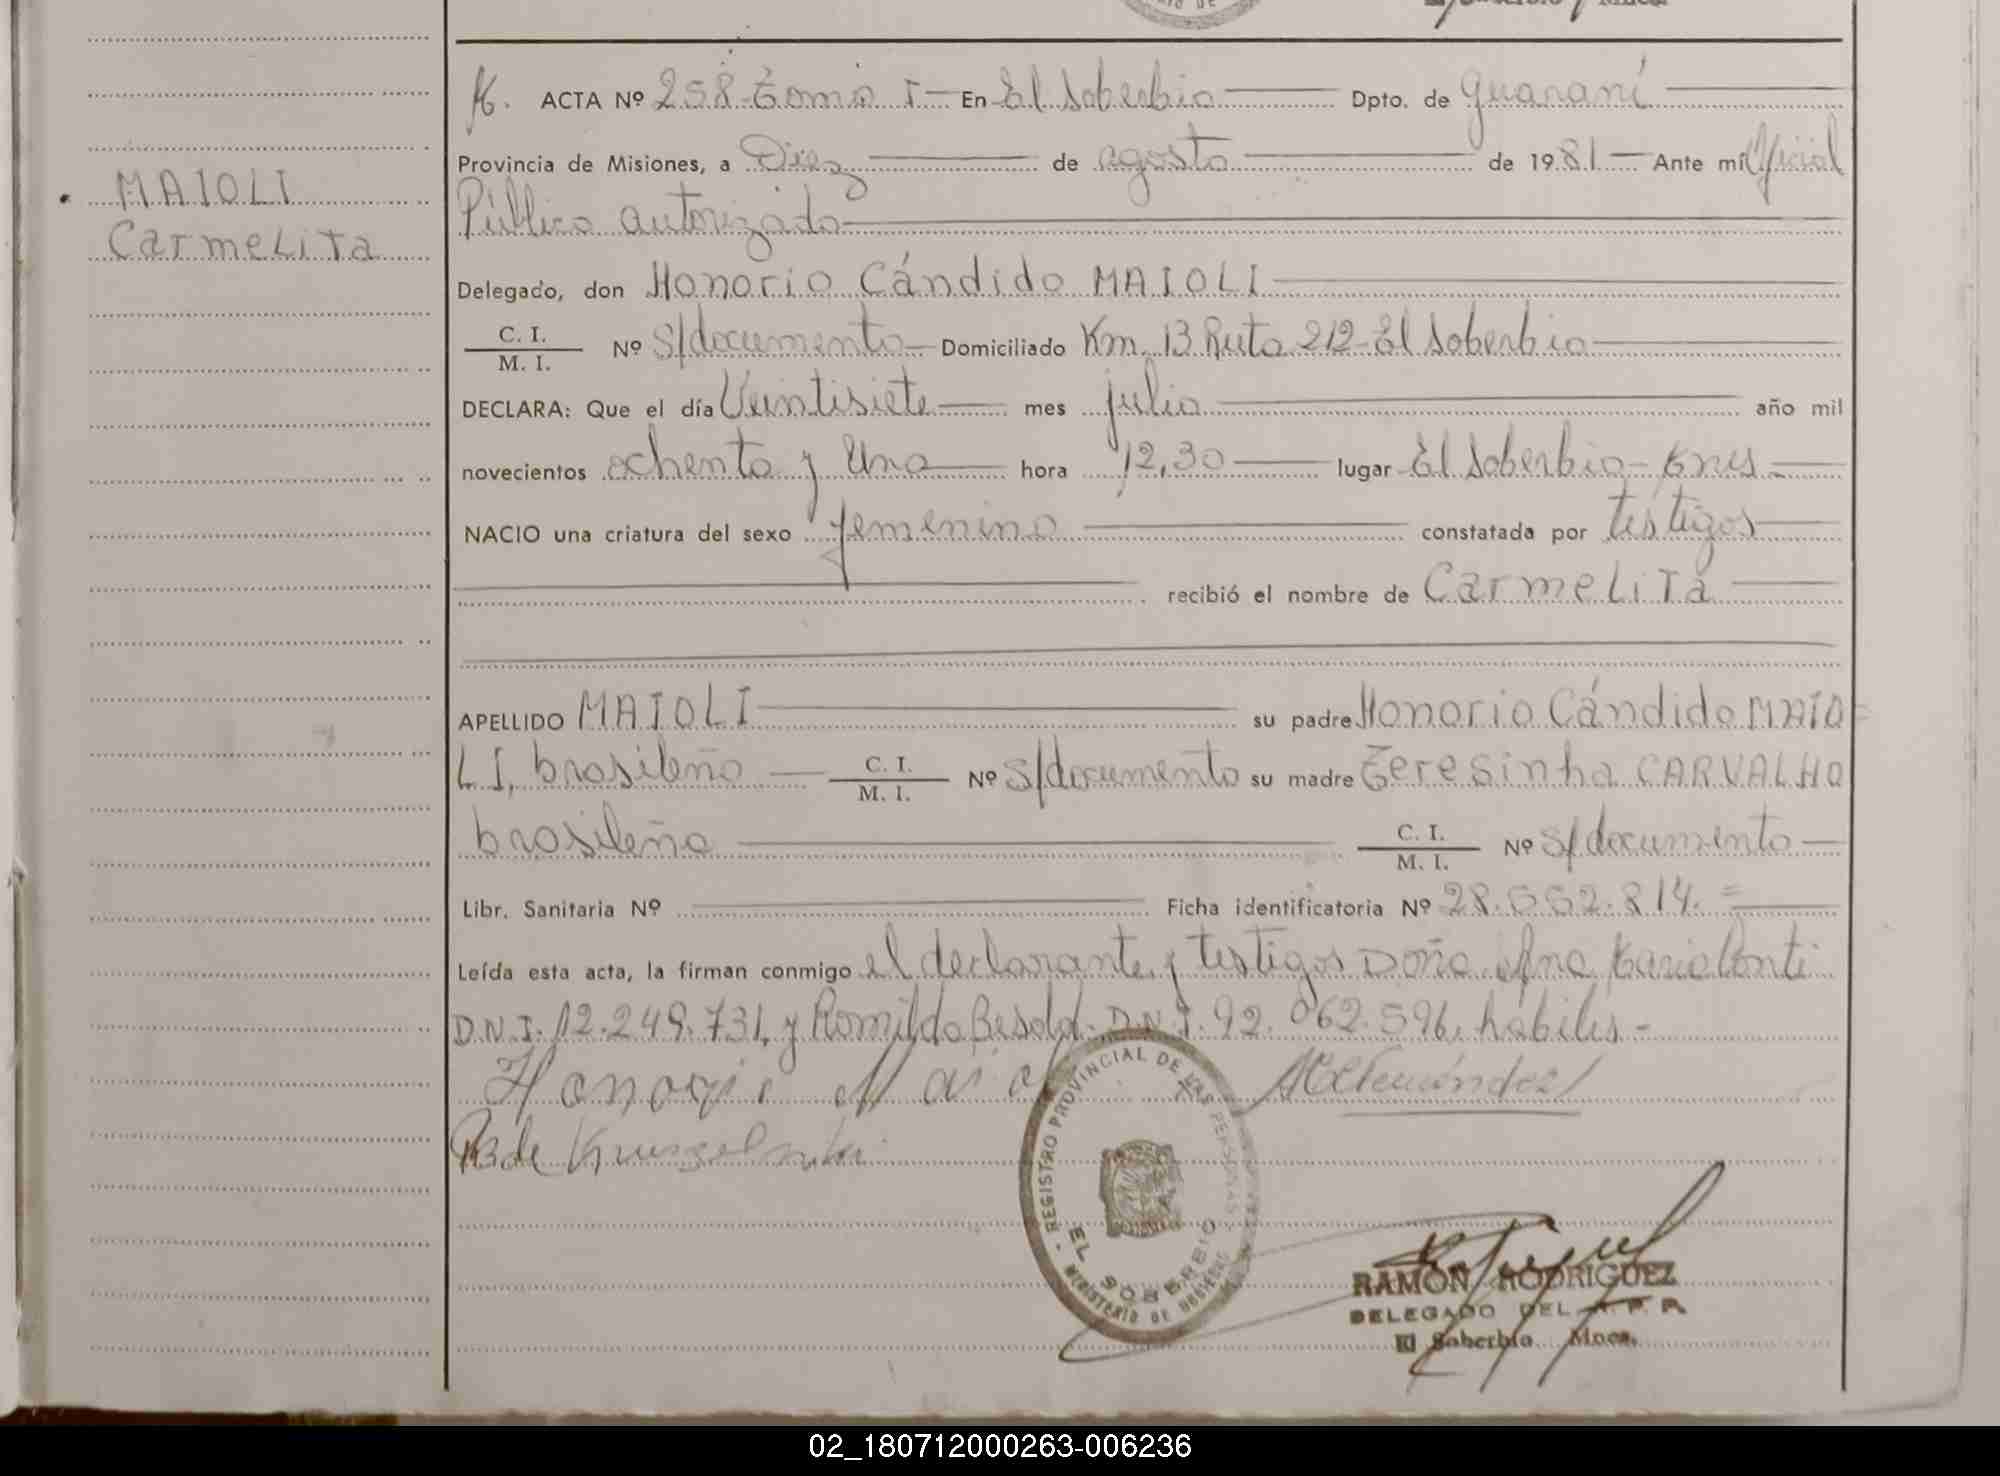 ACTA Nº 258 Tomo I En El Soberbio Dpto. de Guaraní
Provincia de Misiones, a Diez de agosto de 1981 Ante mí Oficial
MAIOLI
Público autorizado
Carmelita
Delegado, don Honorio Cándido MAIOLI
C. I.
M. I.
Nº S/documento Domiciliado Km. 13 Ruta 212-El Soberbio
DECLARA: Que el día Veintisiete mes julio año mil
novecientos ochenta y Uno hora 12,30 lugar El Soberbio-
NACIO una criatura del sexo femenino constatada por testigos
recibió el nombre de Carmelita
APELLIDO MAIOLI su padre Honorio Cándido MAIO=
LI, brasileño C. I. M. I. Nº S/documento su madre Teresinha CARVALHO
brasileña C. I. M. I. Nº S/documento
Libr. Sanitaria Nº Ficha identificatoria Nº 28.662.814.=
Leída esta acta, la firman conmigo el declarante y testigos Doña Ana
D.N.I. 12.249.731, y Romildo Besold. D.N.I. 92.062.596, hábiles-
Honorio
REGISTRO PROVINCIAL DE LAS PERSONAS
EL SOBERBIO
MINISTERIO DE GOBIERNO
RAMÓN RODRIGUEZ
DELEGADO DEL R. P. P.
El Soberbio Mnes.
02_180712000263-006236